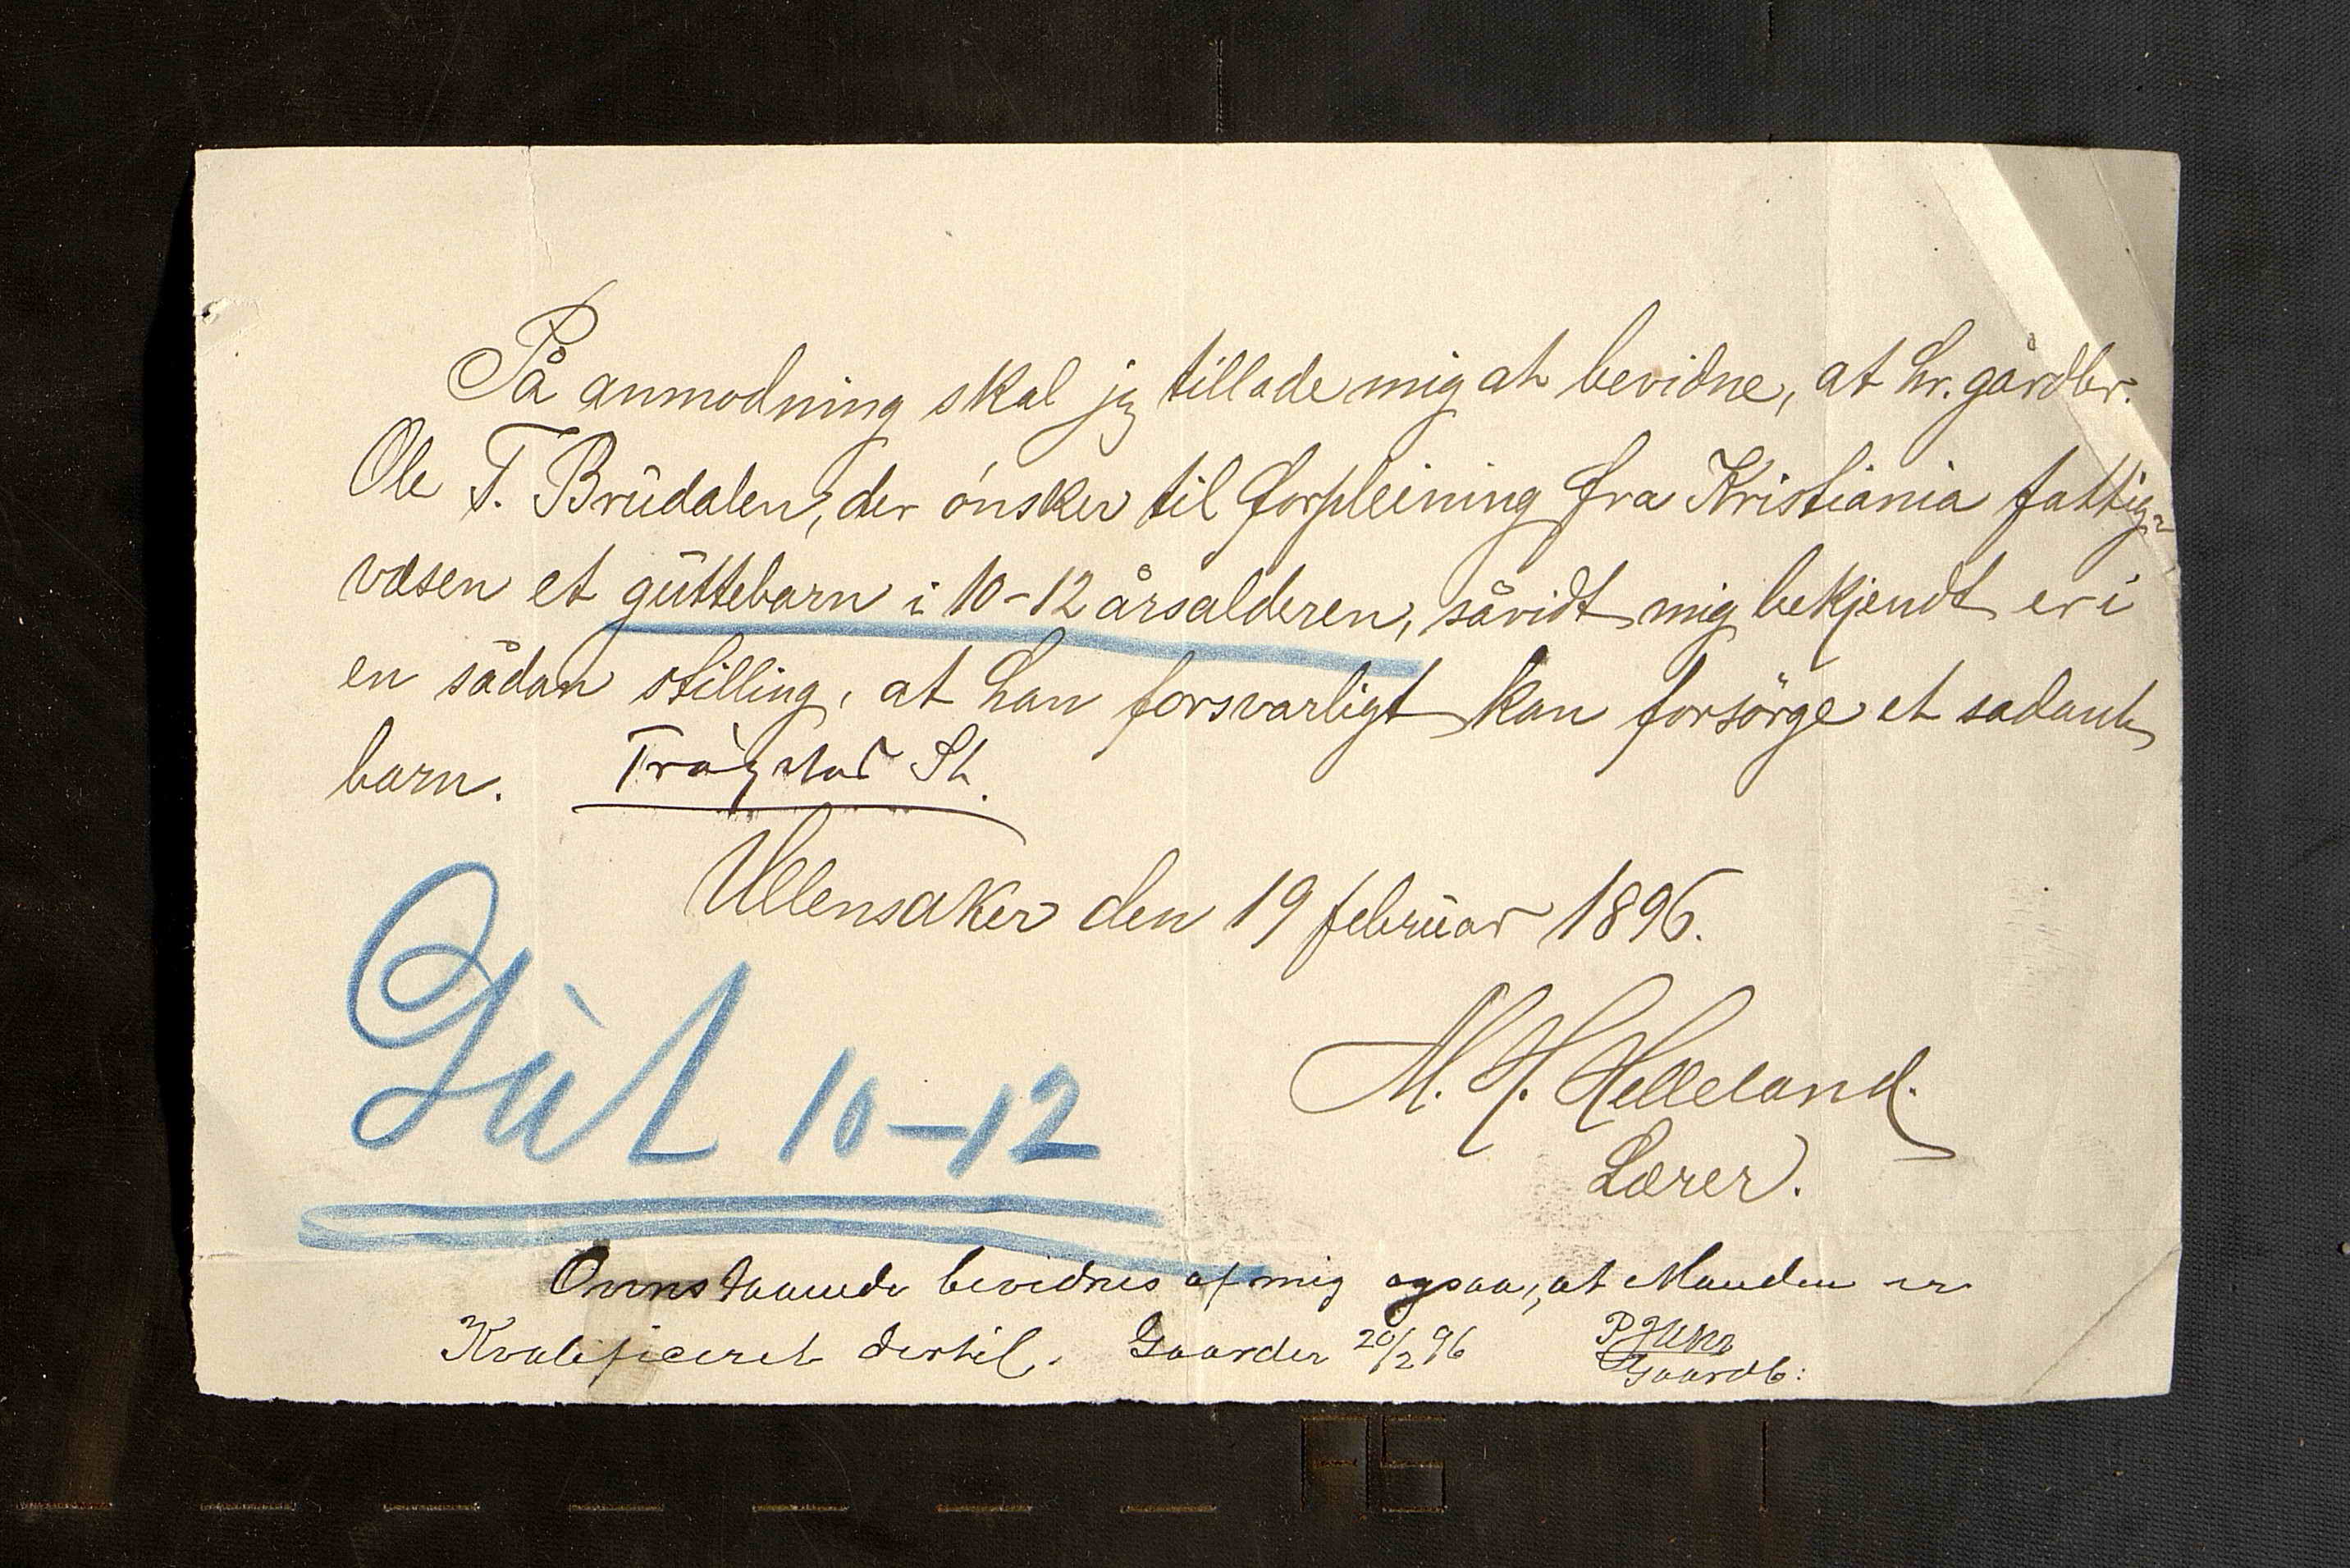 På anmodning skal jeg tillade mig at bevidne, at hr. gårdbr.
Ole T. Brudalen, der ønsker til forpleining fra Kristiania fattig-
væsen et guttebarn i 10-12 årsalderen, såvidt mig bekjendt er i
en sådan stilling, at han forsvarligt kan forsörge et sadant
barn. Trögstad St.
Ullensaker den 19 februar 1896.
M. H. Helleland.
Lærer.
Gut 10-12
Ovenstaaende bevidnes af mig ogsaa, at Manden er
Kvalificeret dertil. Gaarder 20/2 96
Gaardb: